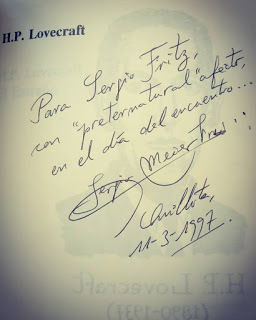 H.P. Lovecraft
Para Sergio Fritz,
con "preternatural" afecto,
en el día del encuentro...
Sergio Meier Frei
Quillota,
11-3-1997.
H.P. Lovecraft
(1890-1937)